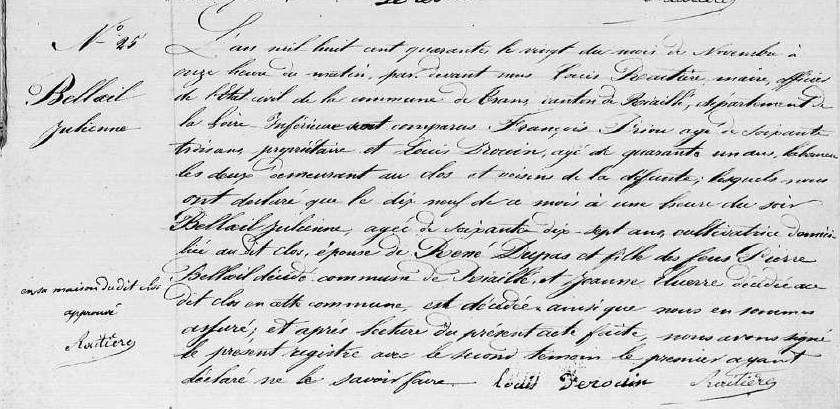 N° 25
Bellœil
Julienne
L'an mil huit cent quarante le vingt du mois de Novembre à
onze heure du matin, par devant nous Louis Raitière, maire, officier
de l'Etat civil de la commune de Trans, canton de Riaillé, département de
la Loire Inférieure sont comparus François Priou agé de soixante
trois ans, propriétaire et Louis Drouin, agé de quarante un ans, laboureur
les deux demeurant au clos et voisins de la défunte; lesquels nous
ont déclaré que le dix neuf de ce mois à une heure du soir
Bellœil Julienne, agée de soixante dix-sept ans, cultivatrice domici-
liée au dit clos, épouse de René Dupas et fille des feus Pierre
Bellœil décédé commune de Riaillé, et Jeanne décédée au
dit clos en cette commune, est décédée ainsi que nous en sommes
assuré; et après lecture du présent acte faite, nous avons signé
le présent registre avec le second temoin le premier ayant
déclaré ne le savoir faire
Louis Derouin
Raitière
en sa maison du dit clos
approuvé
Raitière